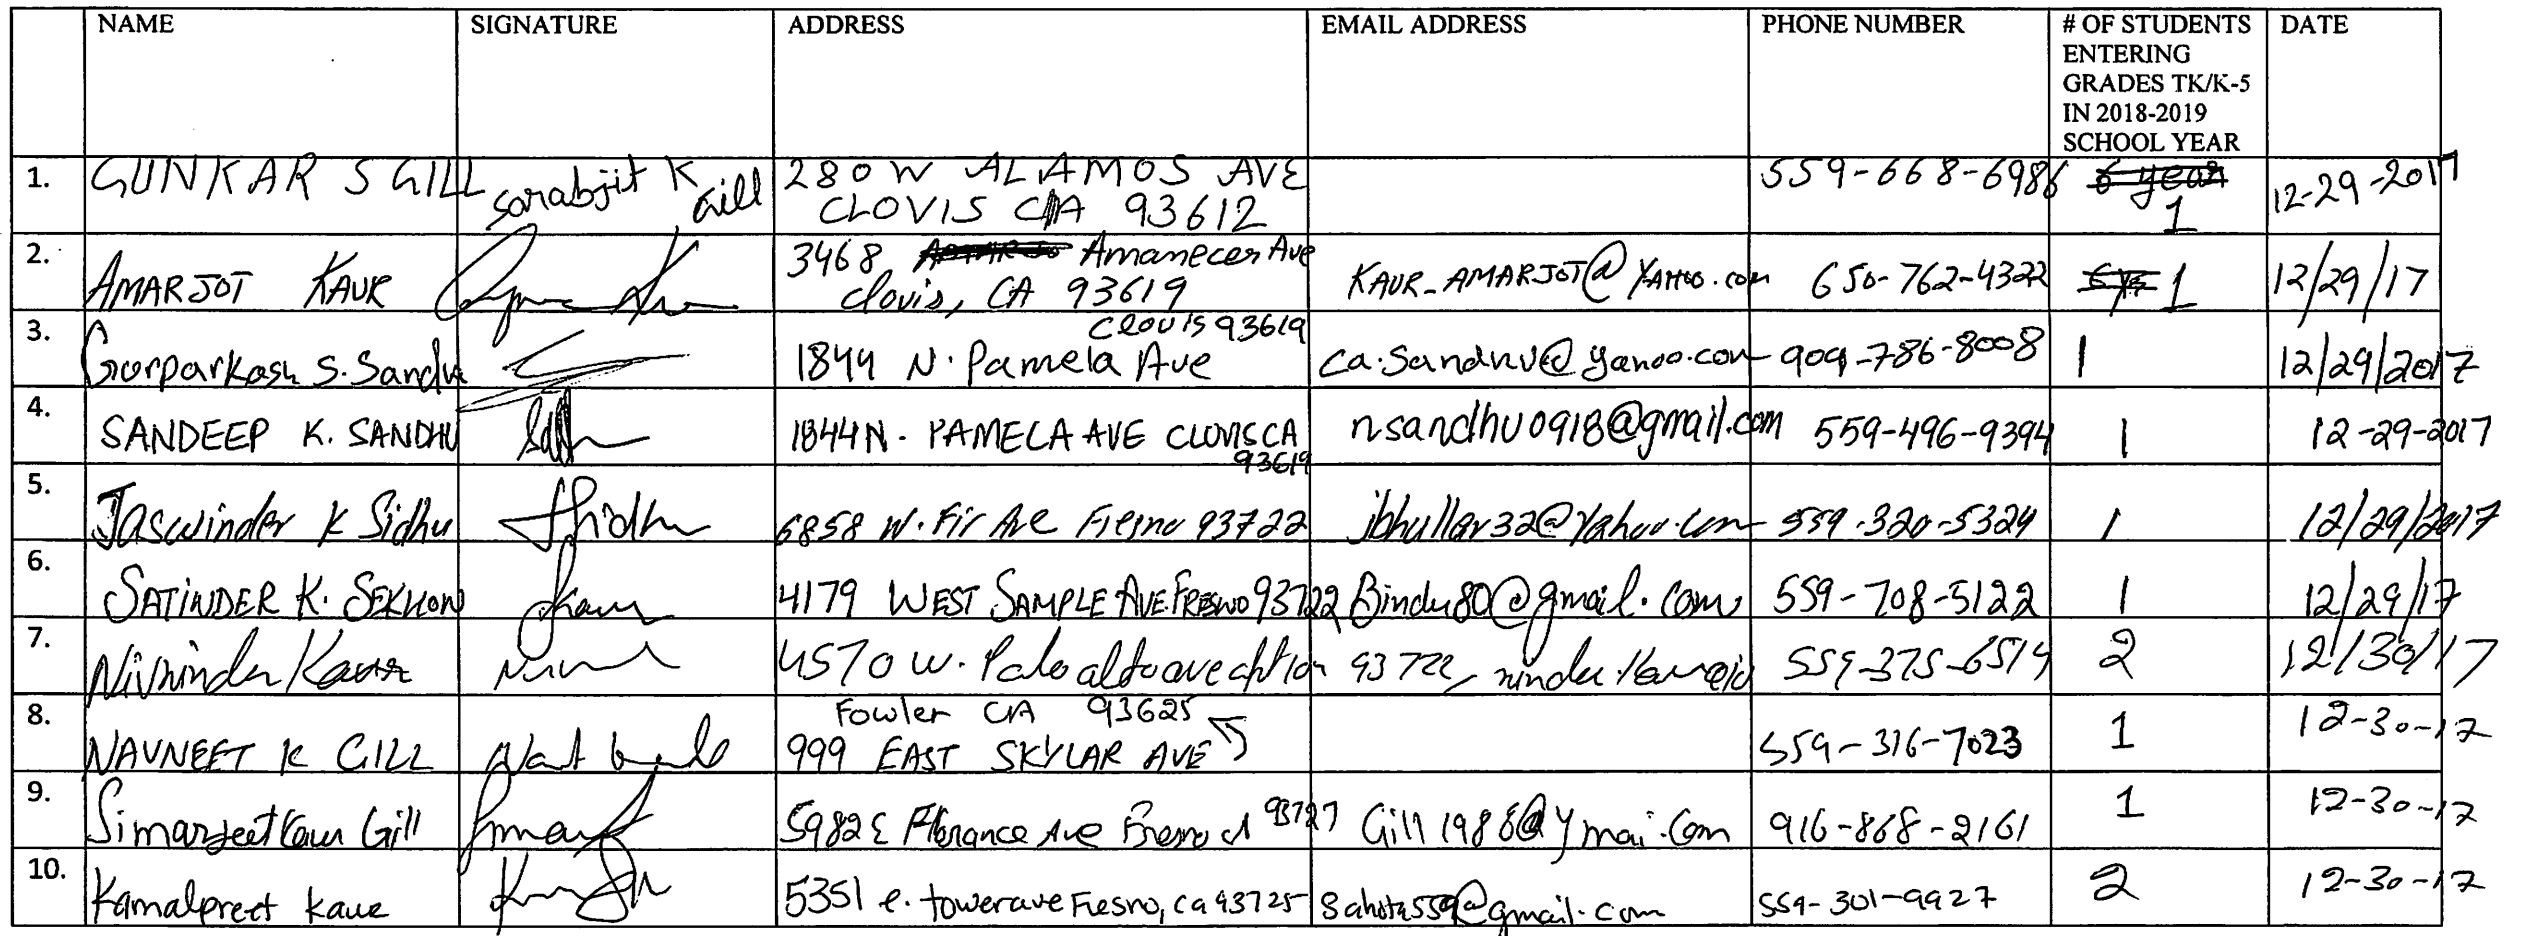 NAME SIGNATURE ADDRESS EMAIL ADDRESS PHONE NUMBER # OF STUDENTS ENTERING GRADES TK/K-5 IN 2018-2019 SCHOOL YEAR DATE
1. GUNKAR S GILL sarabjit K Gill 280 W ALAMOS AVE CLOVIS CA 93612 559-668-6986 6 year 1 12-29-2017
2. AMARJOT KAUR 3468 Amanecer Ave Clovis, CA 93619 KAUR_AMARJOT@YAHOO.com 650-762-4322 1 12/29/17
3. Gurparkash S. Sandhu 1844 N. Pamela Ave Clovis 93619 ca.sandhu@yahoo.com 909-786-8008 1 12/29/2017
4. SANDEEP K. SANDHU 1844 N. PAMELA AVE CLOVIS CA 93619 nsandhu0918@gmail.com 559-496-9394 1 12-29-2017
5. Jaswinder K Sidhu Sidhu 6858 W. Fir Ave Fresno 93722 jbhullar32@yahoo.com 559-320-5324 1 12/29/2017
6. SATINDER K. SEKHON 4179 WEST SAMPLE AVE FRESNO 93722 Bindu80@gmail.com 559-708-5122 1 12/29/17
7. Kaur 4570 W. Palo alto ave 93722 559-375-6519 2 12/30/17
8. NAVNEET K GILL 999 EAST SKYLAR AVE Fowler CA 93625 559-316-7023 1 12-30-17
9. Simarjeet Kaur Gill 5982 E Florance Ave Fresno CA 93727 Gill1986@ymai.com 916-868-2161 1 12-30-17
10. Kamalpreet Kaur 5351 e. tower ave Fresno, ca 93725 Sahota559@gmail.com 559-301-9927 2 12-30-17